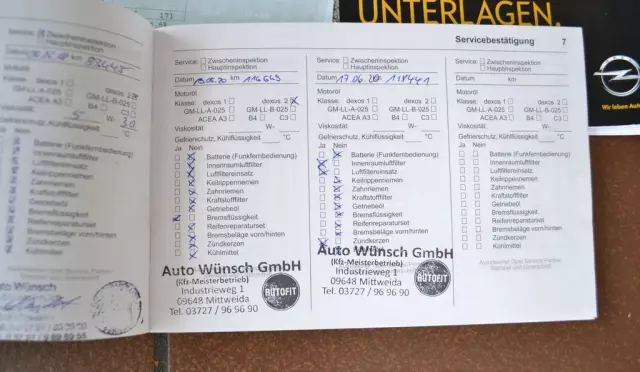 171
UNTERLAGEN.
OPEL
Wir leben Autos
Servicebestätigung 7
Zwischeninspektion
Hauptinspektion
km
Motoröl
Klasse: dexos1
GM-LL-A-025
GM-LL-B-025
ACEA A3 B4 C3
Viskosität W-
Gefrierschutz, Kühlflüssigkeit °C
Ja Nein
Batterie (Funkfernbedienung)
Innenraumluftfilter
Luftfiltereinsatz
Keilrippenriemen
Zahnriemen
Kraftstofffilter
Getriebeöl
Bremsflüssigkeit
Reifenreparaturset
Bremsbeläge vorn/hinten
Zündkerzen
Kühlmittel
Auto Wünsch
Service: Zwischeninspektion
Hauptinspektion
Datum km 116649
Motoröl
Klasse: dexos 1 dexos 2 x
GM-LL-A-025 GM-LL-B-025
ACEA A3 B4 C3
Viskosität: W-
Gefrierschutz, Kühlflüssigkeit °C
Ja Nein
Batterie (Funkfernbedienung)
Innenraumluftfilter
Luftfiltereinsatz
Keilrippenriemen
Zahnriemen
Kraftstofffilter
Getriebeöl
Bremsflüssigkeit
Reifenreparaturset
Bremsbeläge vorn/hinten
Zündkerzen
Kühlmittel
Auto Wünsch GmbH
(Kfz-Meisterbetrieb)
Industrieweg 1
09648 Mittweida
Tel. 03727 / 96 56 90
AUTOFIT
Service: Zwischeninspektion
Hauptinspektion
Datum 17.06.20 km 118441
Motoröl
Klasse: dexos 1 dexos 2
GM-LL-A-025 GM-LL-B-025
ACEA A3 B4 C3
Viskosität: W-
Gefrierschutz, Kühlflüssigkeit °C
Ja Nein
Batterie (Funkfernbedienung)
Innenraumluftfilter
Luftfiltereinsatz
Keilrippenriemen
Zahnriemen
Kraftstofffilter
Getriebeöl
Bremsflüssigkeit
Reifenreparaturset
Bremsbeläge vorn/hinten
Zündkerzen
Auto Wünsch GmbH
(Kfz-Meisterbetrieb)
Industrieweg 1
09648 Mittweida
Tel. 03727 / 96 96 90
AUTOFIT
Service: Zwischeninspektion
Hauptinspektion
Datum km
Motoröl
Klasse: dexos 1 dexos 2
GM-LL-A-025 GM-LL-B-025
ACEA A3 B4 C3
Viskosität: W-
Gefrierschutz, Kühlflüssigkeit °C
Ja Nein
Batterie (Funkfernbedienung)
Innenraumluftfilter
Luftfiltereinsatz
Keilrippenriemen
Zahnriemen
Kraftstofffilter
Getriebeöl
Bremsflüssigkeit
Reifenreparaturset
Bremsbeläge vorn/hinten
Zündkerzen
Kühlmittel
Autorisierter Opel Service Partner